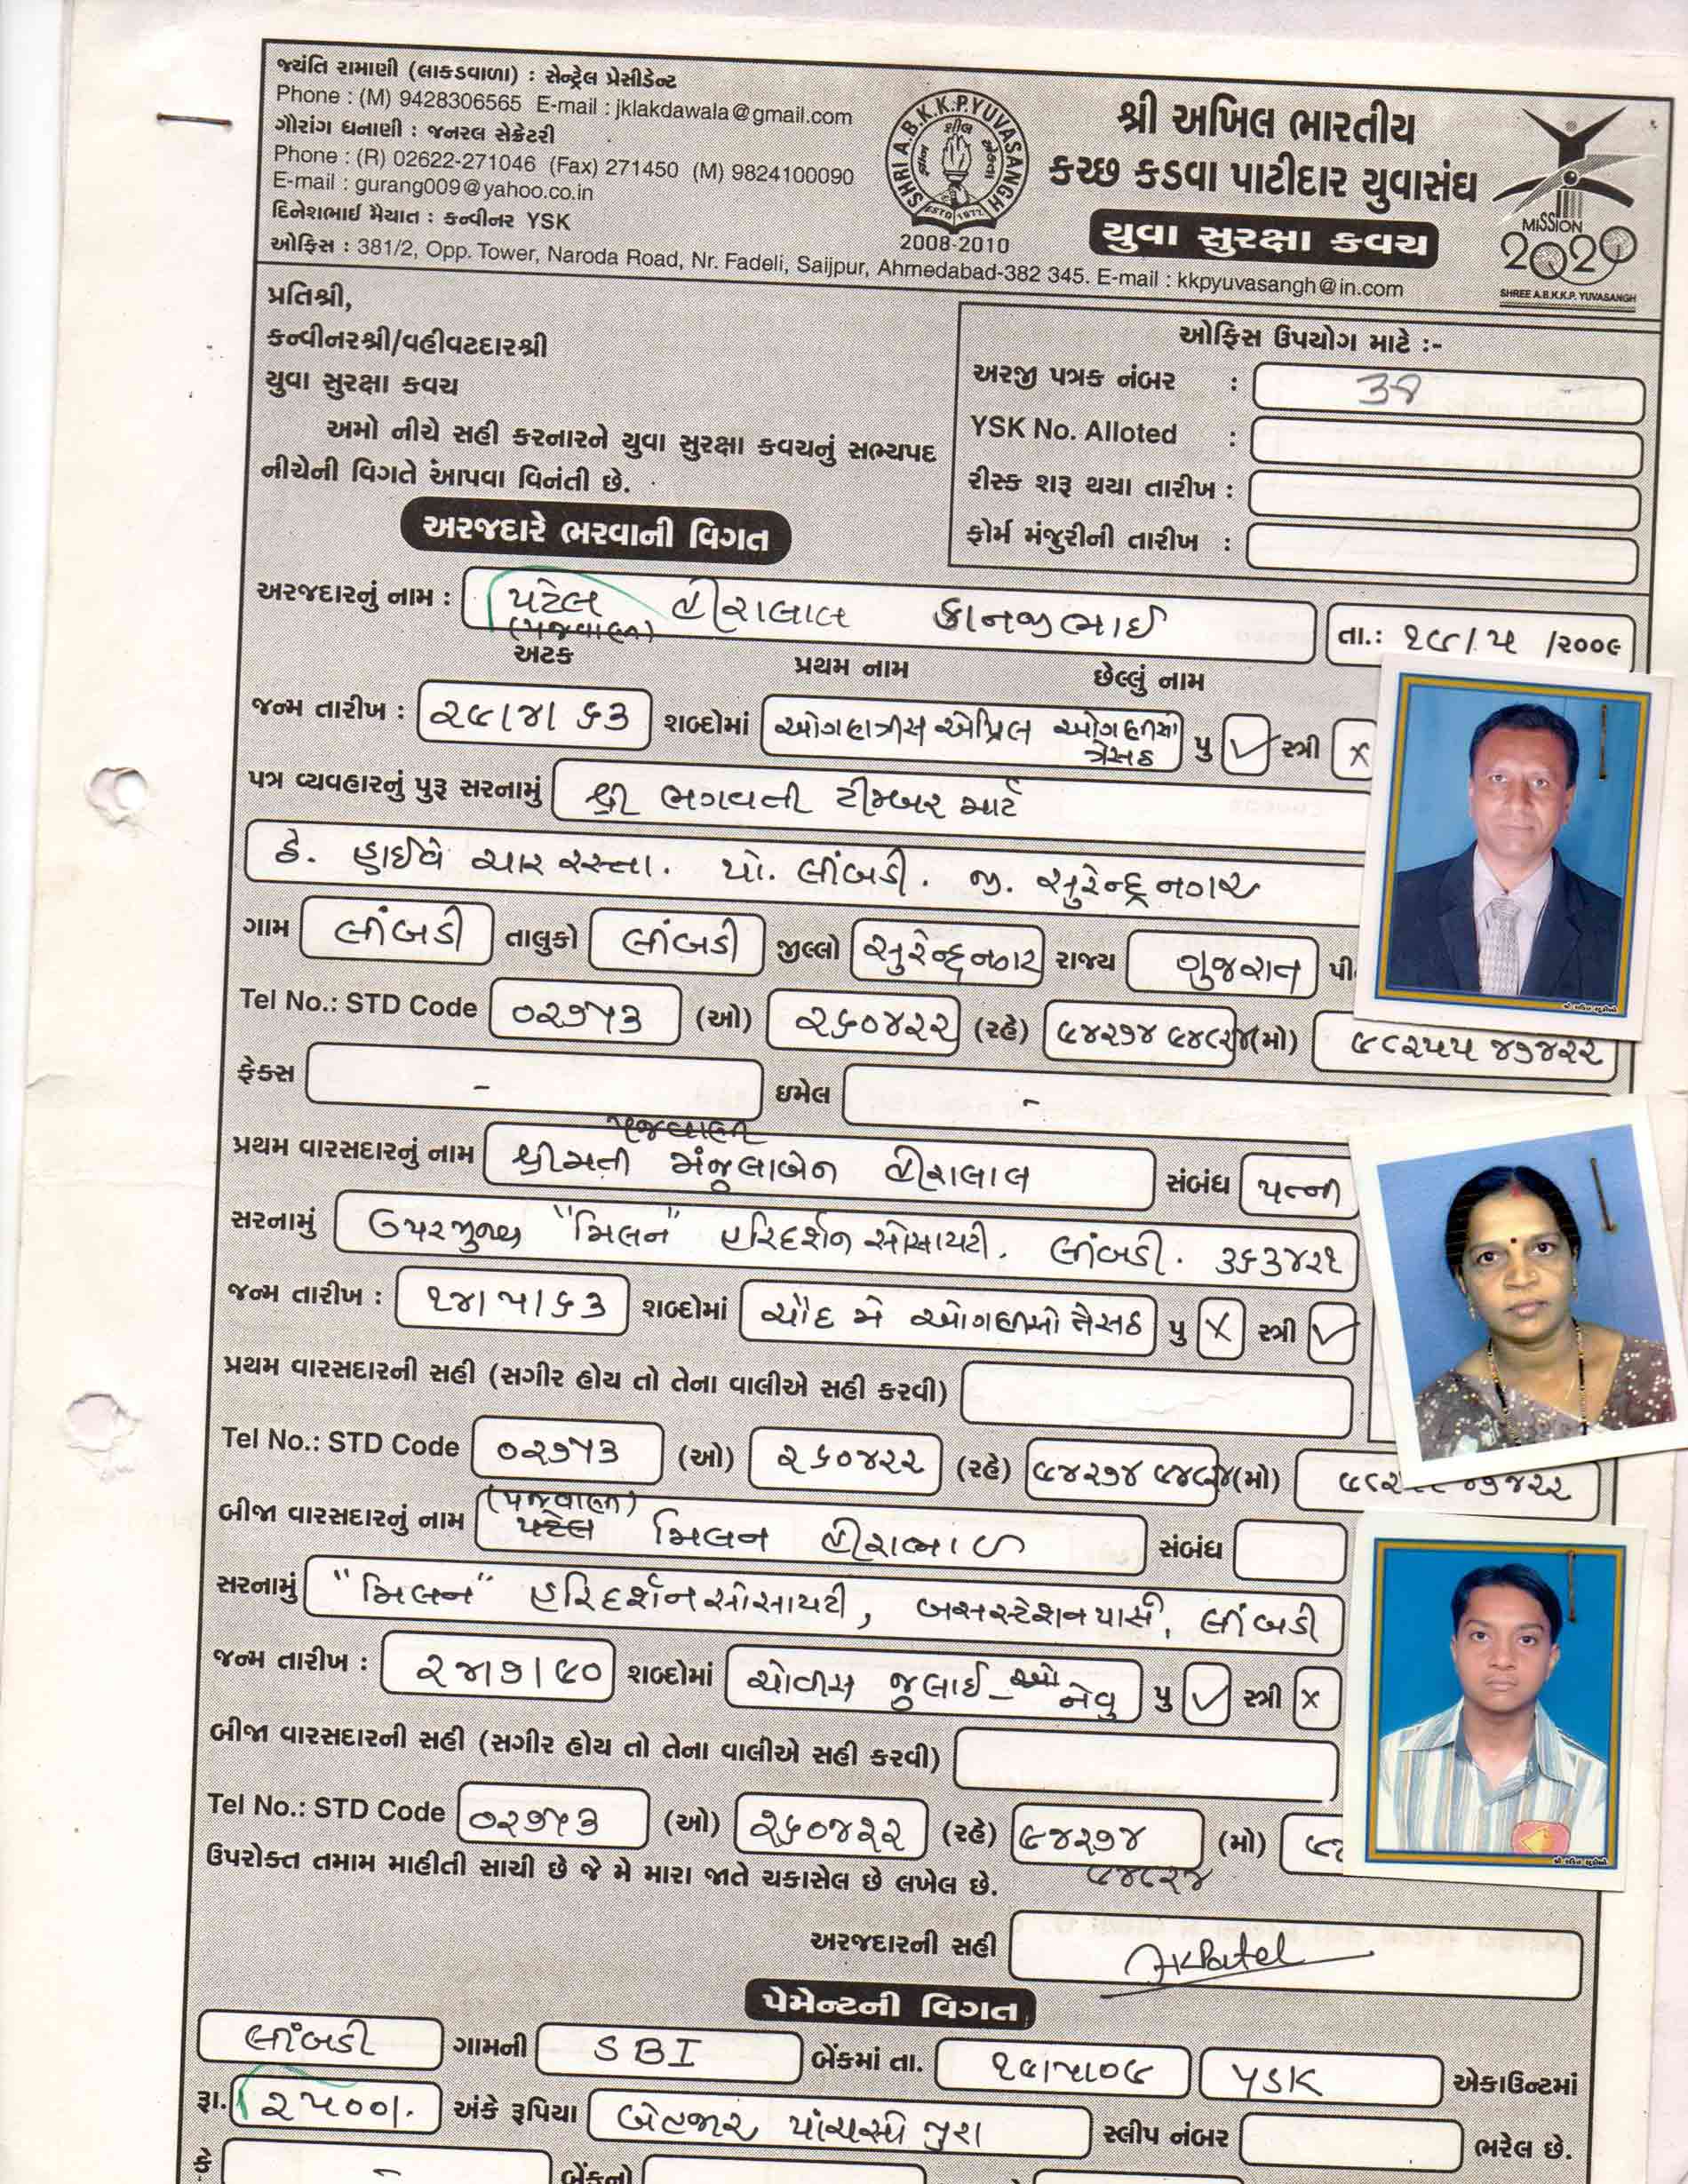 જ્યંતિ રામાણી (લાકડવાળા) : સેન્ટ્રેલ પ્રેસીડેન્ટ
Phone : (M) 9428306565 E-mail : jklakdawala@gmail.com
ગૌરાંગ ધનાણી : જનરલ સેક્રેટરી
Phone : (R) 02622-271046 (Fax) 271450 (M) 9824100090
E-mail : gurang009@yahoo.co.in
દિનેશભાઈ મૈયાત : કન્વીનર YSK
ઓફિસ : 381/2, Opp. Tower, Naroda Road, Nr. Fadeli, Saijpur, Ahmedabad-382 345. E-mail : kkpyuvasangh@in.com
SHRI A.B.K.K.P. YUVASANGH
ESTD 1977
2008-2010
શ્રી અખિલ ભારતીય
કચ્છ કડવા પાટીદાર યુવાસંઘ
યુવા સુરક્ષા કવચ
MISSION
2020
SHREE A.B.K.K.P. YUVASANGH
પ્રતિશ્રી,
કન્વીનરશ્રી/વહીવટદારશ્રી
યુવા સુરક્ષા કવચ
અમો નીચે સહી કરનારને યુવા સુરક્ષા કવચનું સભ્યપદ
નીચેની વિગતે આપવા વિનંતી છે.
ઓફિસ ઉપયોગ માટે :-
અરજી પત્રક નંબર :
YSK No. Alloted :
રીસ્ક શરૂ થયા તારીખ :
ફોર્મ મંજુરીની તારીખ :
અરજદારે ભરવાની વિગત
અરજદારનું નામ : પટેલ હીરાલાલ કાનજીભાઈ તા.: ૧૯/૫ /૨૦૦૯
અટક પ્રથમ નામ છેલ્લું નામ
જન્મ તારીખ : ૨૯/૪/૬૩ શબ્દોમાં ઓગણત્રીસ એપ્રિલ ઓગણીસો ત્રેસઠ પુ ✓ સ્ત્રી x
પત્ર વ્યવહારનું પુરૂ સરનામું શ્રી ભગવતી ટીમ્બર માર્ટ
ઠે. હાઈવે ચાર રસ્તા. પો. લીંબડી. જી. સુરેન્દ્રનગર
ગામ લીંબડી તાલુકો લીંબડી જીલ્લો સુરેન્દ્રનગર રાજ્ય ગુજરાત પી
Tel No.: STD Code ૦૨૭૫૩ (ઓ) ૨૬૦૪૨૨ (રહે) ૯૪૨૭૪ ૯૪૮૨૪ (મો) ૯૮૨૫૫ ૪૭૪૨૨
ફેક્સ - ઇમેલ -
પ્રથમ વારસદારનું નામ શ્રીમતી મંજુલાબેન હીરાલાલ સંબંધ પત્ની
સરનામું ઉપરમુજબ "મિલન" હરિદર્શન સોસાયટી. લીંબડી. ૩૬૩૪૨૧
જન્મ તારીખ : ૧૪/૫/૬૩ શબ્દોમાં ચૌદ મે ઓગણીસો તેસઠ પુ x સ્ત્રી ✓
પ્રથમ વારસદારની સહી (સગીર હોય તો તેના વાલીએ સહી કરવી)
Tel No.: STD Code ૦૨૭૫૩ (ઓ) ૨૬૦૪૨૨ (રહે) ૯૪૨૭૪ ૯૪૮૨૪ (મો)
બીજા વારસદારનું નામ મિલન સંબંધ
સરનામું "મિલન" હરિદર્શન સોસાયટી, બસસ્ટેશન પાસે, લીંબડી
જન્મ તારીખ : ૨૪/૭/૯૦ શબ્દોમાં ચોવીસ જુલાઈ - નેવુ પુ ✓ સ્ત્રી x
બીજા વારસદારની સહી (સગીર હોય તો તેના વાલીએ સહી કરવી)
Tel No.: STD Code ૦૨૭૫૩ (ઓ) ૨૬૦૪૨૨ (રહે) ૯૪૨૭૪ (મો)
૯૪૮૨૪
ઉપરોક્ત તમામ માહીતી સાચી છે જે મે મારા જાતે ચકાસેલ છે લખેલ છે.
અરજદારની સહી
પેમેન્ટની વિગત
લીંબડી ગામની SBI બેંકમાં તા. ૧૯/૫/૦૯ YSK એકાઉન્ટમાં
રૂા. ૨૫૦૦/. અંકે રૂપિયા બેહજાર પાંચસો પુરા સ્લીપ નંબર ભરેલ છે.